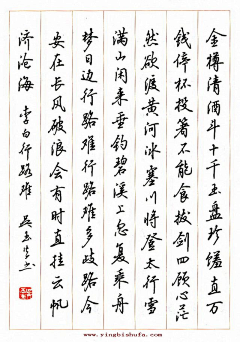 金樽清酒斗十千玉盘珍馐直万
钱停杯投箸不能食拔剑四顾心茫
然欲渡黄河冰塞川将登太行雪
满山闲来垂钓碧溪上忽复乘舟
梦日边行路难行路难多歧路今
安在长风破浪会有时直挂云帆
济沧海 李白行路难
www.yingbishufa.com